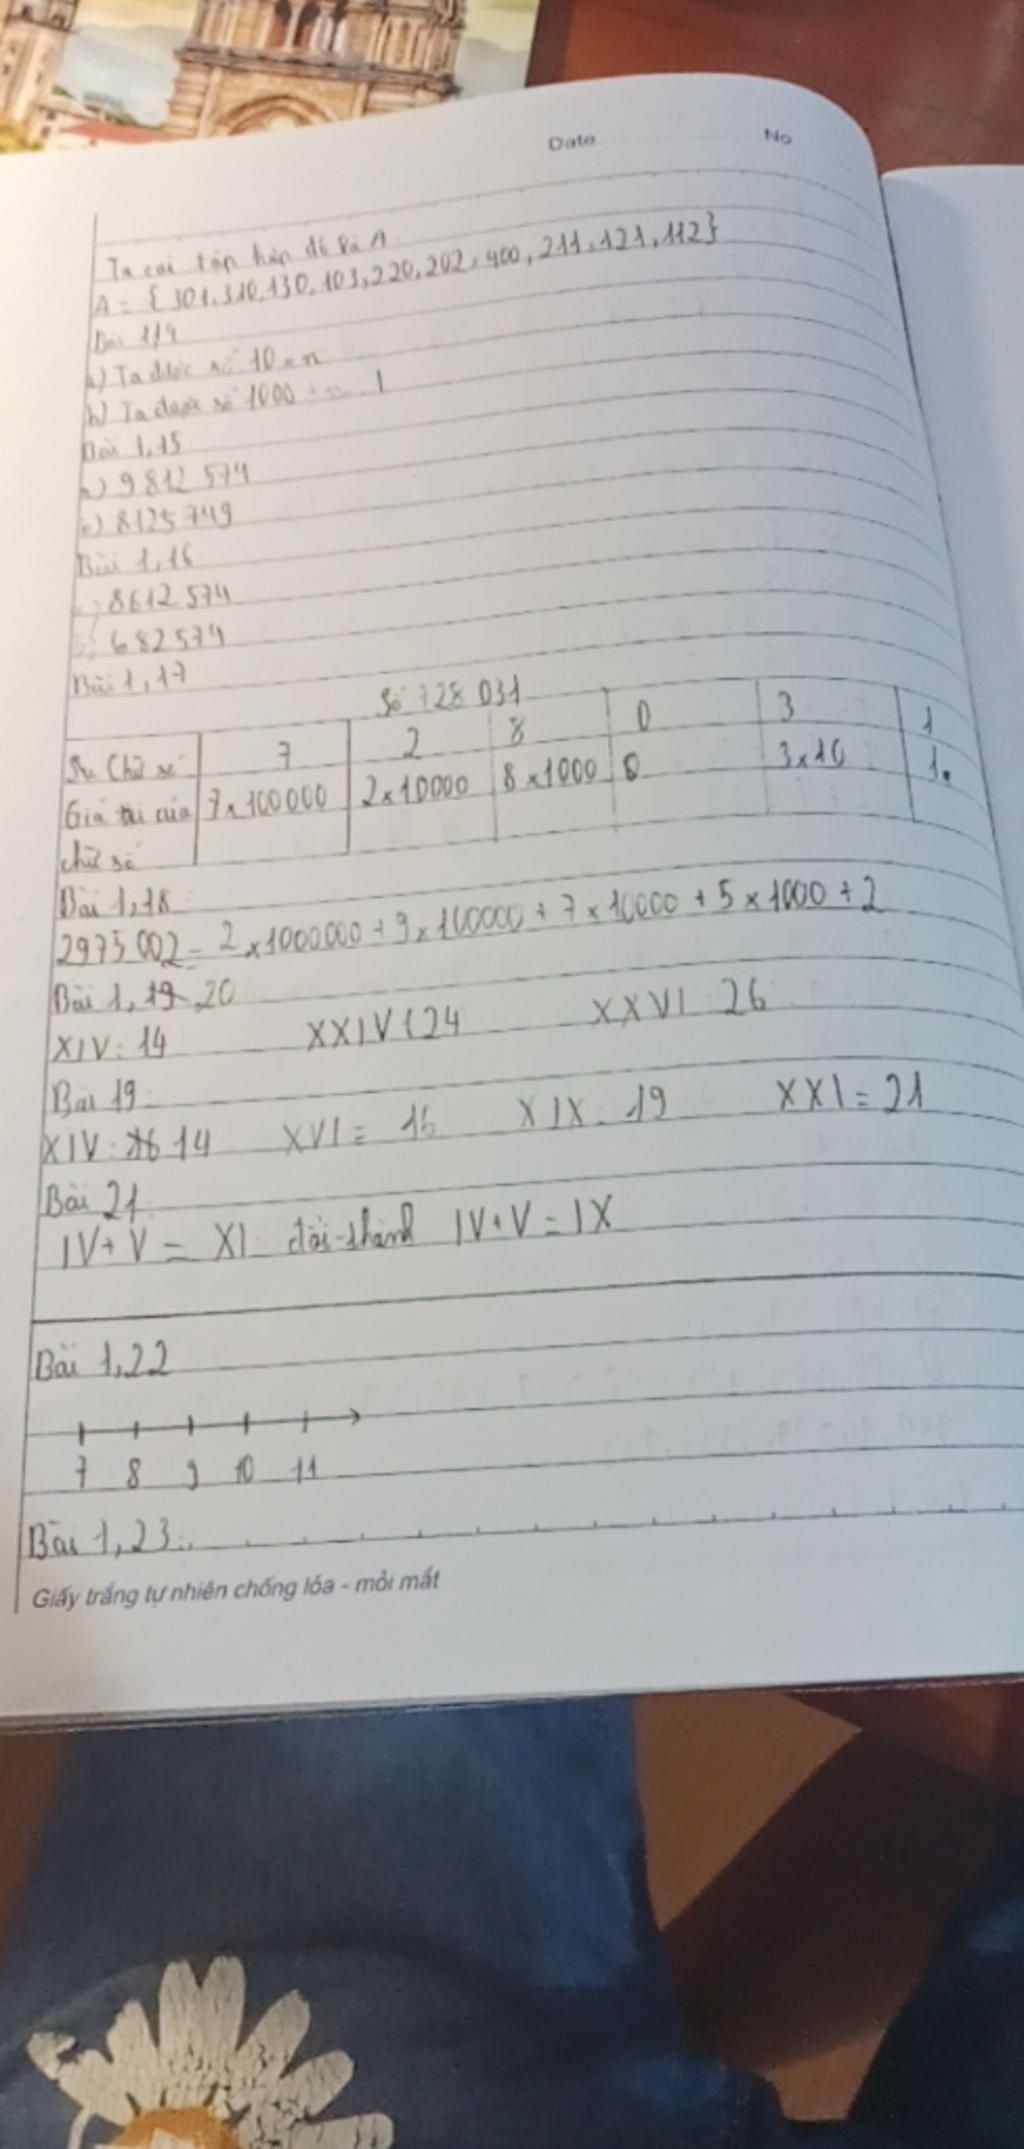 Date No
Ta coi tập hợp đó là A
A = { 301, 310, 130, 103, 220, 202, 400, 211, 121, 112}
Bài 1,14
a) Ta được số 10 × n
b) Ta được số 1000 1
Bài 1,15
a) 9812574
8125749
Bài 1,16
8612574
682574
Bài 1,17
Số 728 031
Chữ số 7 2 8 0 3 1
Giá trị của 7 × 100000 2 × 10000 8 × 1000 0 3 × 10 1.
chữ số
Bài 1,18
2975 002 = 2 × 1000000 + 9 × 100000 + 7 × 10000 + 5 × 1000 + 2
Bài 1, 20
XIV: 14 XXIV 24 XXVI 26
Bài 19:
XIV: 14 XVI = 16 XIX: 19 XXI = 21
Bài 21:
IV + V = XI đổi thành IV + V = IX
Bài 1,22
7 8 9 10 11
Bài 1,23:
Giấy trắng tự nhiên chống lóa - mỏi mắt